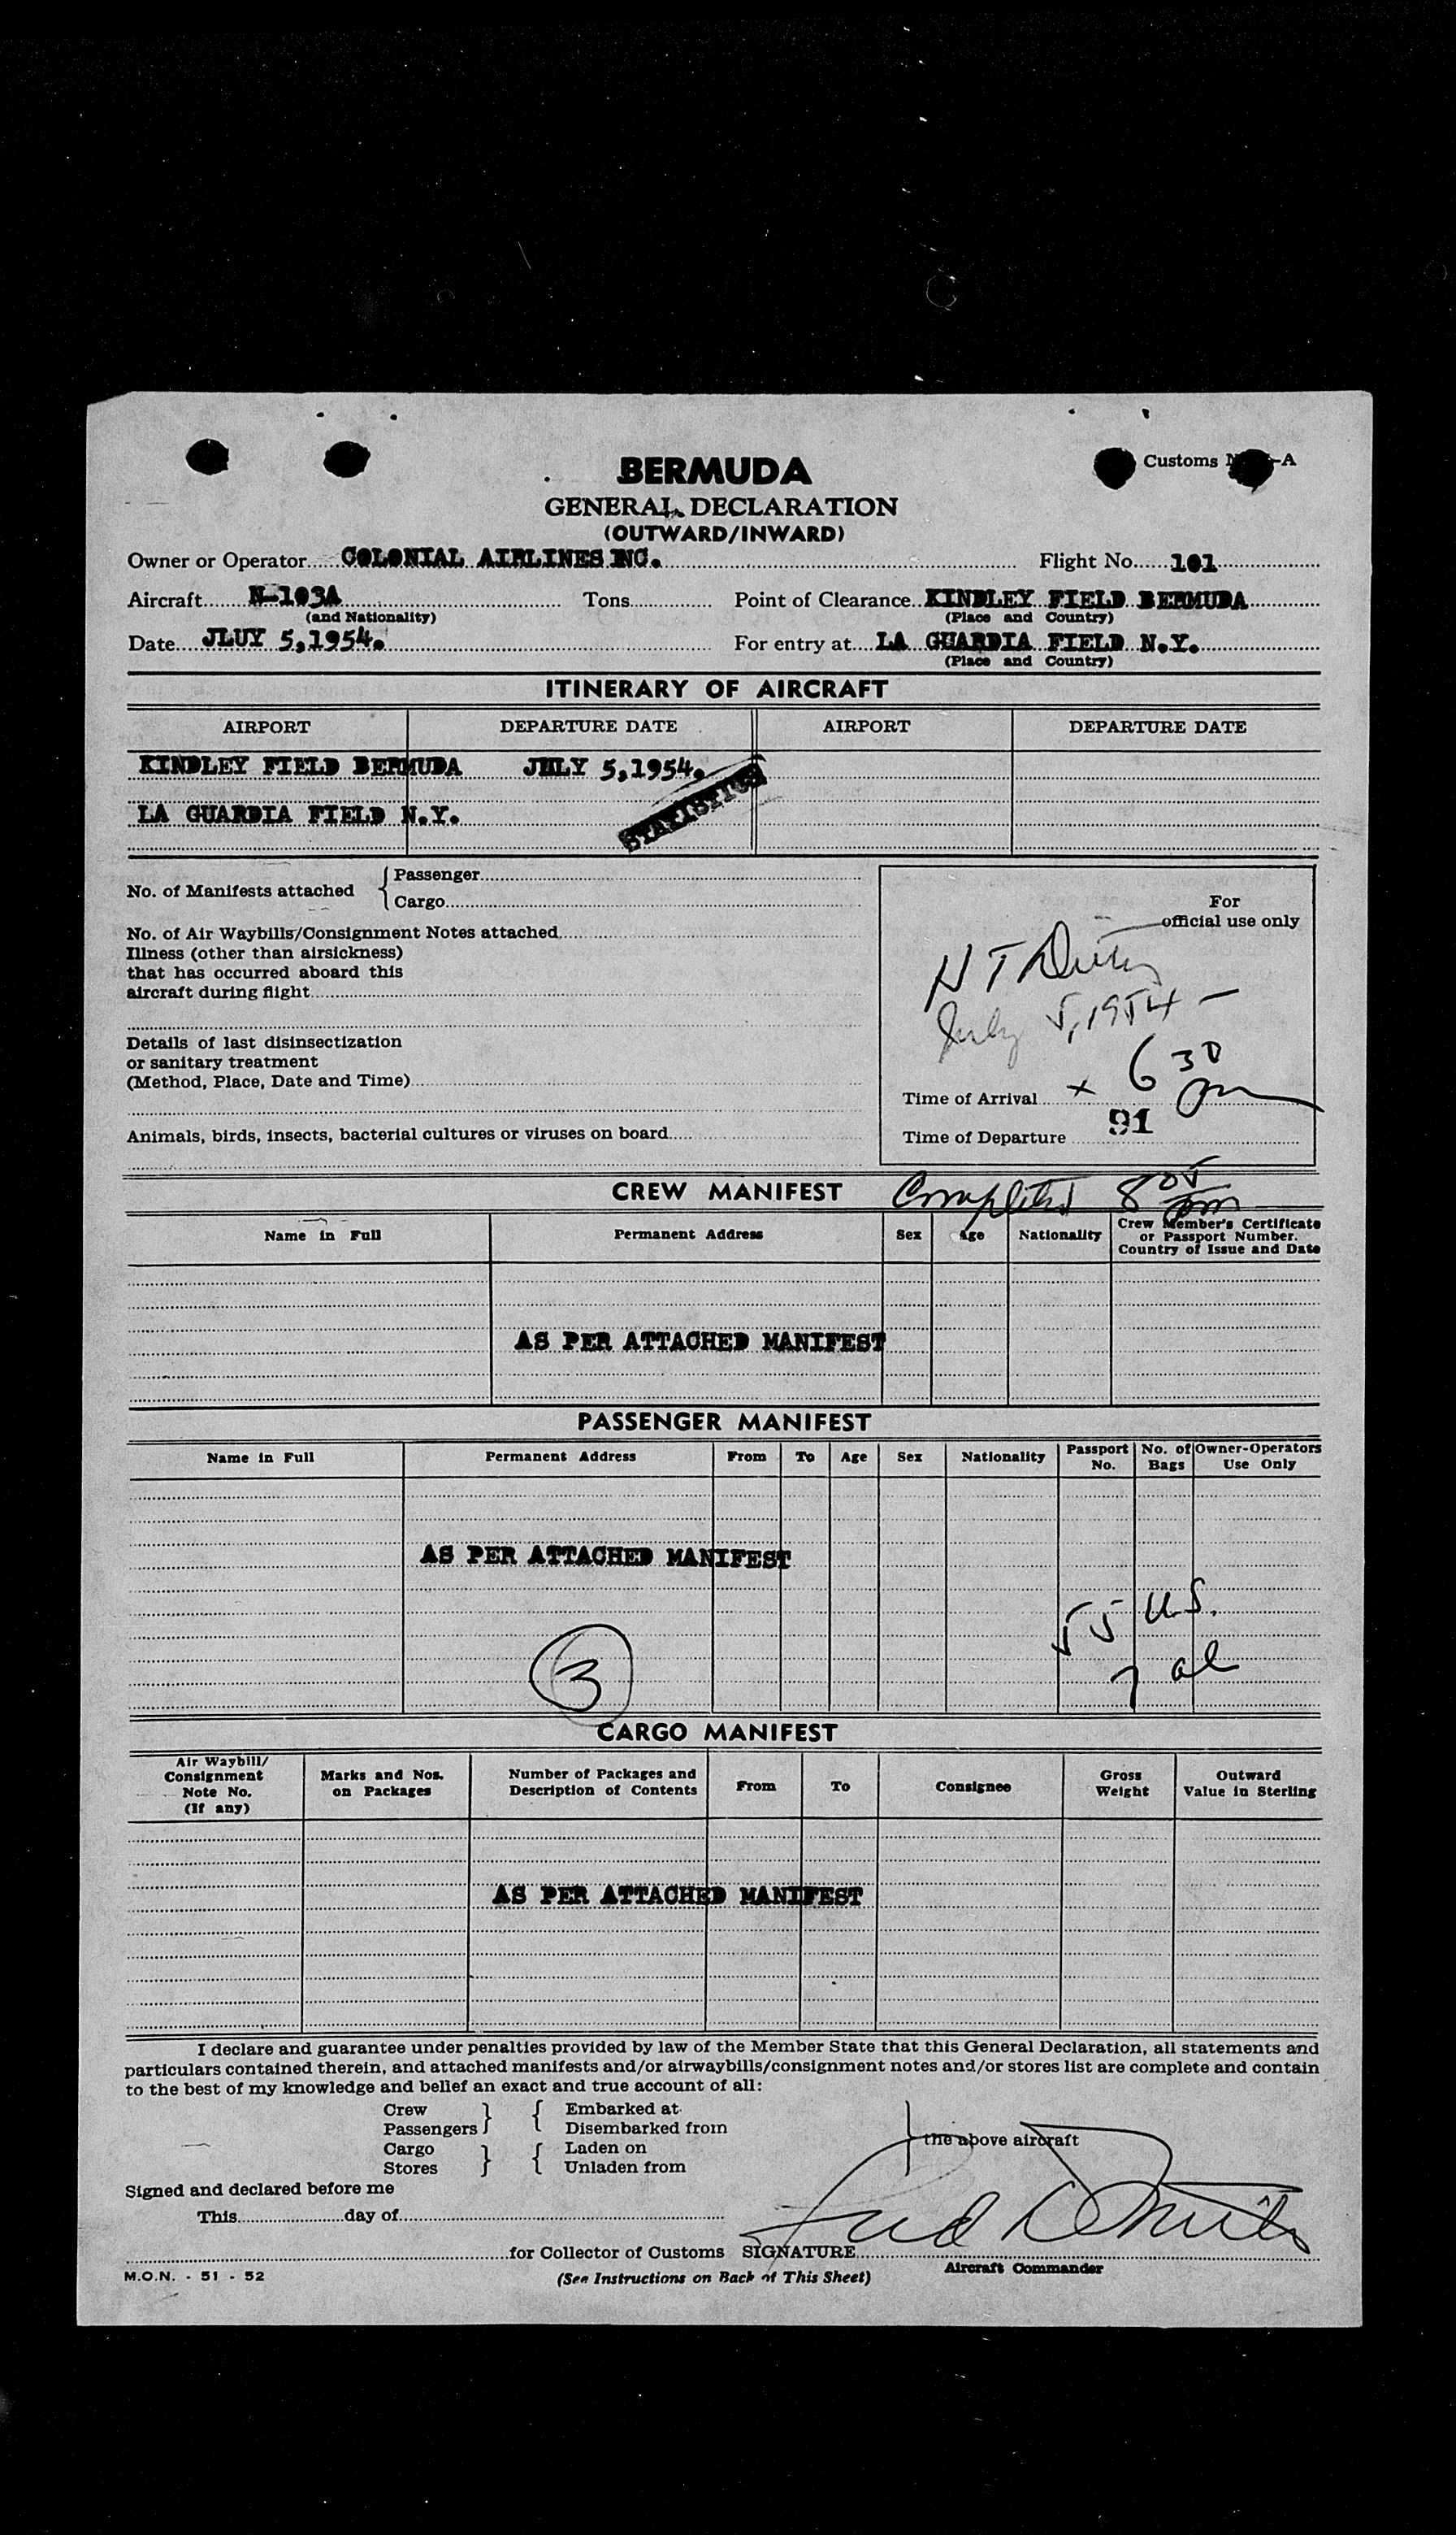 Customs -A
BERMUDA
GENERAL DECLARATION
(OUTWARD/INWARD)
Owner or Operator COLONIAL AIRLINES INC. Flight No. 101
Aircraft N-103A Tons Point of Clearance KINDLEY FIELD BERMUDA
(and Nationality) (Place and Country)
Date JLUY 5,1954. For entry at LA GUARDIA FIELD N.Y.
(Place and Country)
ITINERARY OF AIRCRAFT
AIRPORT DEPARTURE DATE AIRPORT DEPARTURE DATE
KINDLEY FIELD BERMUDA JULY 5,1954.
STATISTICS
LA GUARDIA FIELD N.Y.
No. of Manifests attached { Passenger
Cargo
For
official use only
No. of Air Waybills/Consignment Notes attached
Illness (other than airsickness)
that has occurred aboard this
aircraft during flight
H T
July 5, 1954 -
Details of last disinsectization
or sanitary treatment
(Method, Place, Date and Time)
Time of Arrival x 6 30 pm
Animals, birds, insects, bacterial cultures or viruses on board
91
Time of Departure
CREW MANIFEST Completed 8 05 pm
Name in Full Permanent Address Sex Age Nationality Crew Member's Certificate
or Passport Number.
Country of Issue and Date
AS PER ATTACHED MANIFEST
PASSENGER MANIFEST
Name in Full Permanent Address From To Age Sex Nationality Passport No. No. of Bags Owner-Operators Use Only
AS PER ATTACHED MANIFEST
55 U.S.
3
7 al
CARGO MANIFEST
Air Waybill/
Consignment
Note No.
(If any) Marks and Nos.
on Packages Number of Packages and
Description of Contents From To Consignee Gross
Weight Outward
Value in Sterling
AS PER ATTACHED MANIFEST
I declare and guarantee under penalties provided by law of the Member State that this General Declaration, all statements and
particulars contained therein, and attached manifests and/or airwaybills/consignment notes and/or stores list are complete and contain
to the best of my knowledge and belief an exact and true account of all:
Crew } { Embarked at
Passengers Disembarked from
} the above aircraft
Cargo } { Laden on
Stores Unladen from
Signed and declared before me
This day of
for Collector of Customs SIGNATURE
Aircraft Commander
M.O.N. - 51 - 52 (See Instructions on Back of This Sheet)